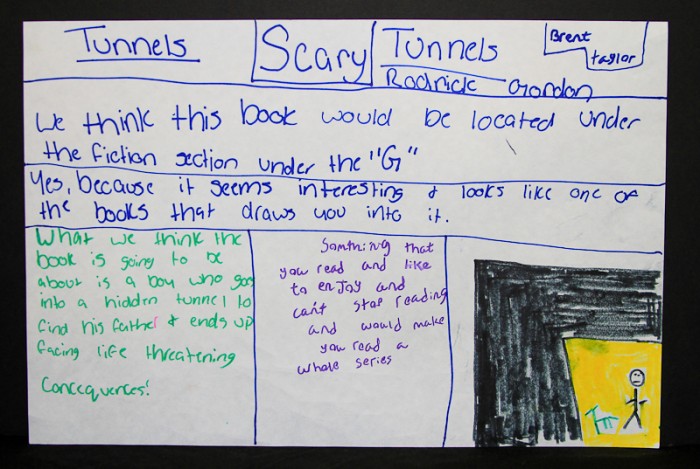 Tunnels
Scary
Tunnels
Rodrick Gordon
Brent
taylor
We think this book would be located under
the fiction section under the "G"
Yes, because it seems interesting & looks like one of
the books that draws you into it.
What we think the
book is going to be
about is a boy who goes
into a hidden tunnel to
find his father & ends up
facing life threatening
Concequences!
Somthing that
you read and like
to enjoy and
can't stop reading
and would make
you read a
whole series